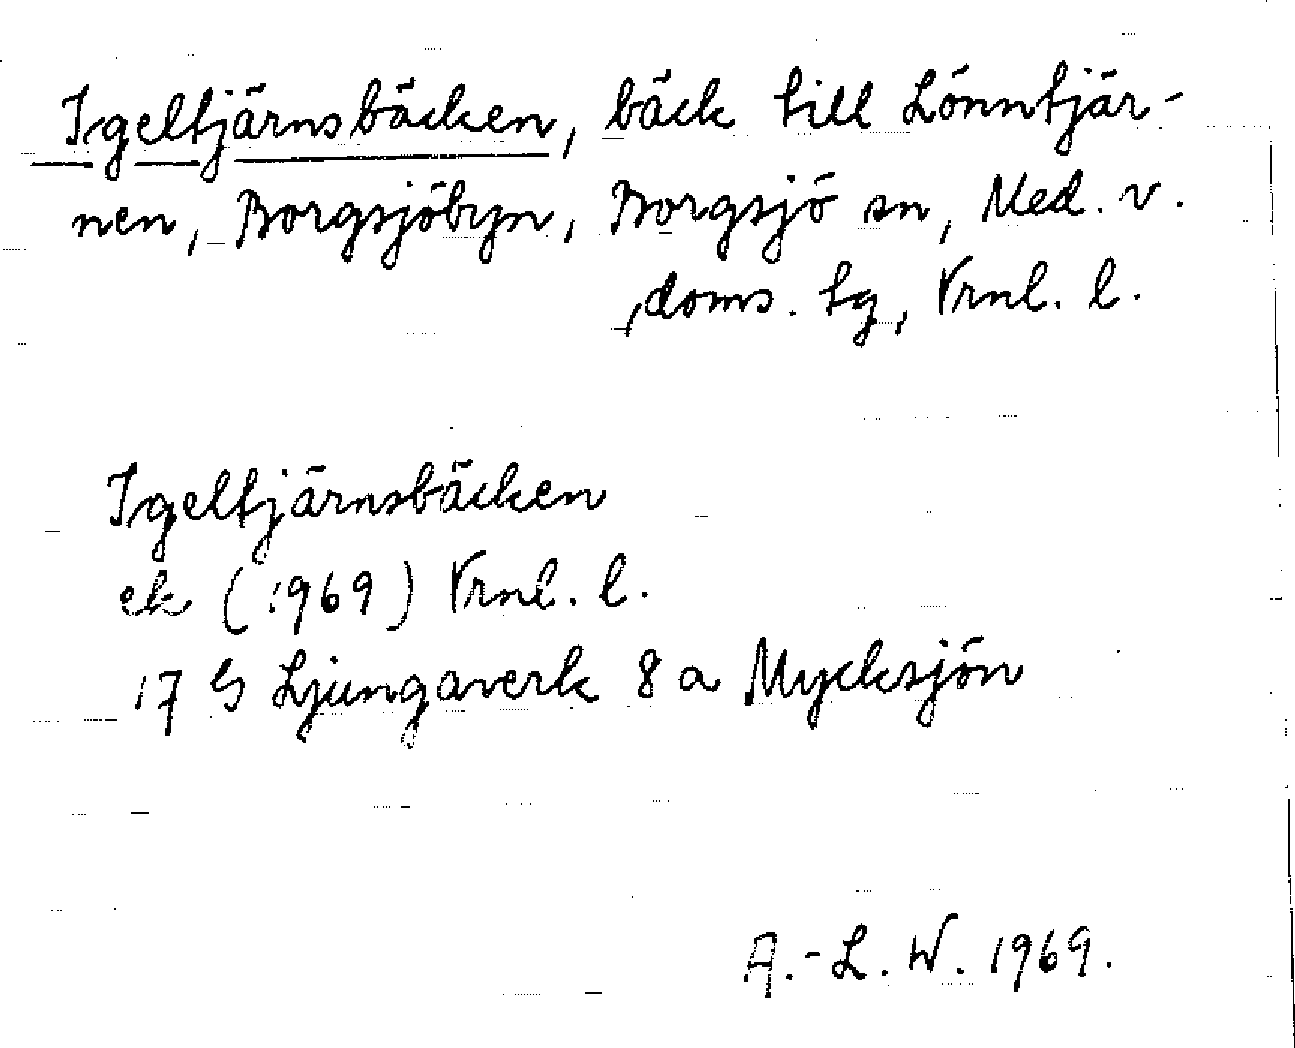 Igeltjärnsbäcken, bäck till Lönntjär-
nen, Borgsjöbyn, Borgsjö sn, Med. v.
doms. tg, Vrnl. l.
Igeltjärnsbäcken
ek (1969) Vrnl. l.
17 G Ljungaverk 8 a Mycksjön
A.-L. W. 1969.